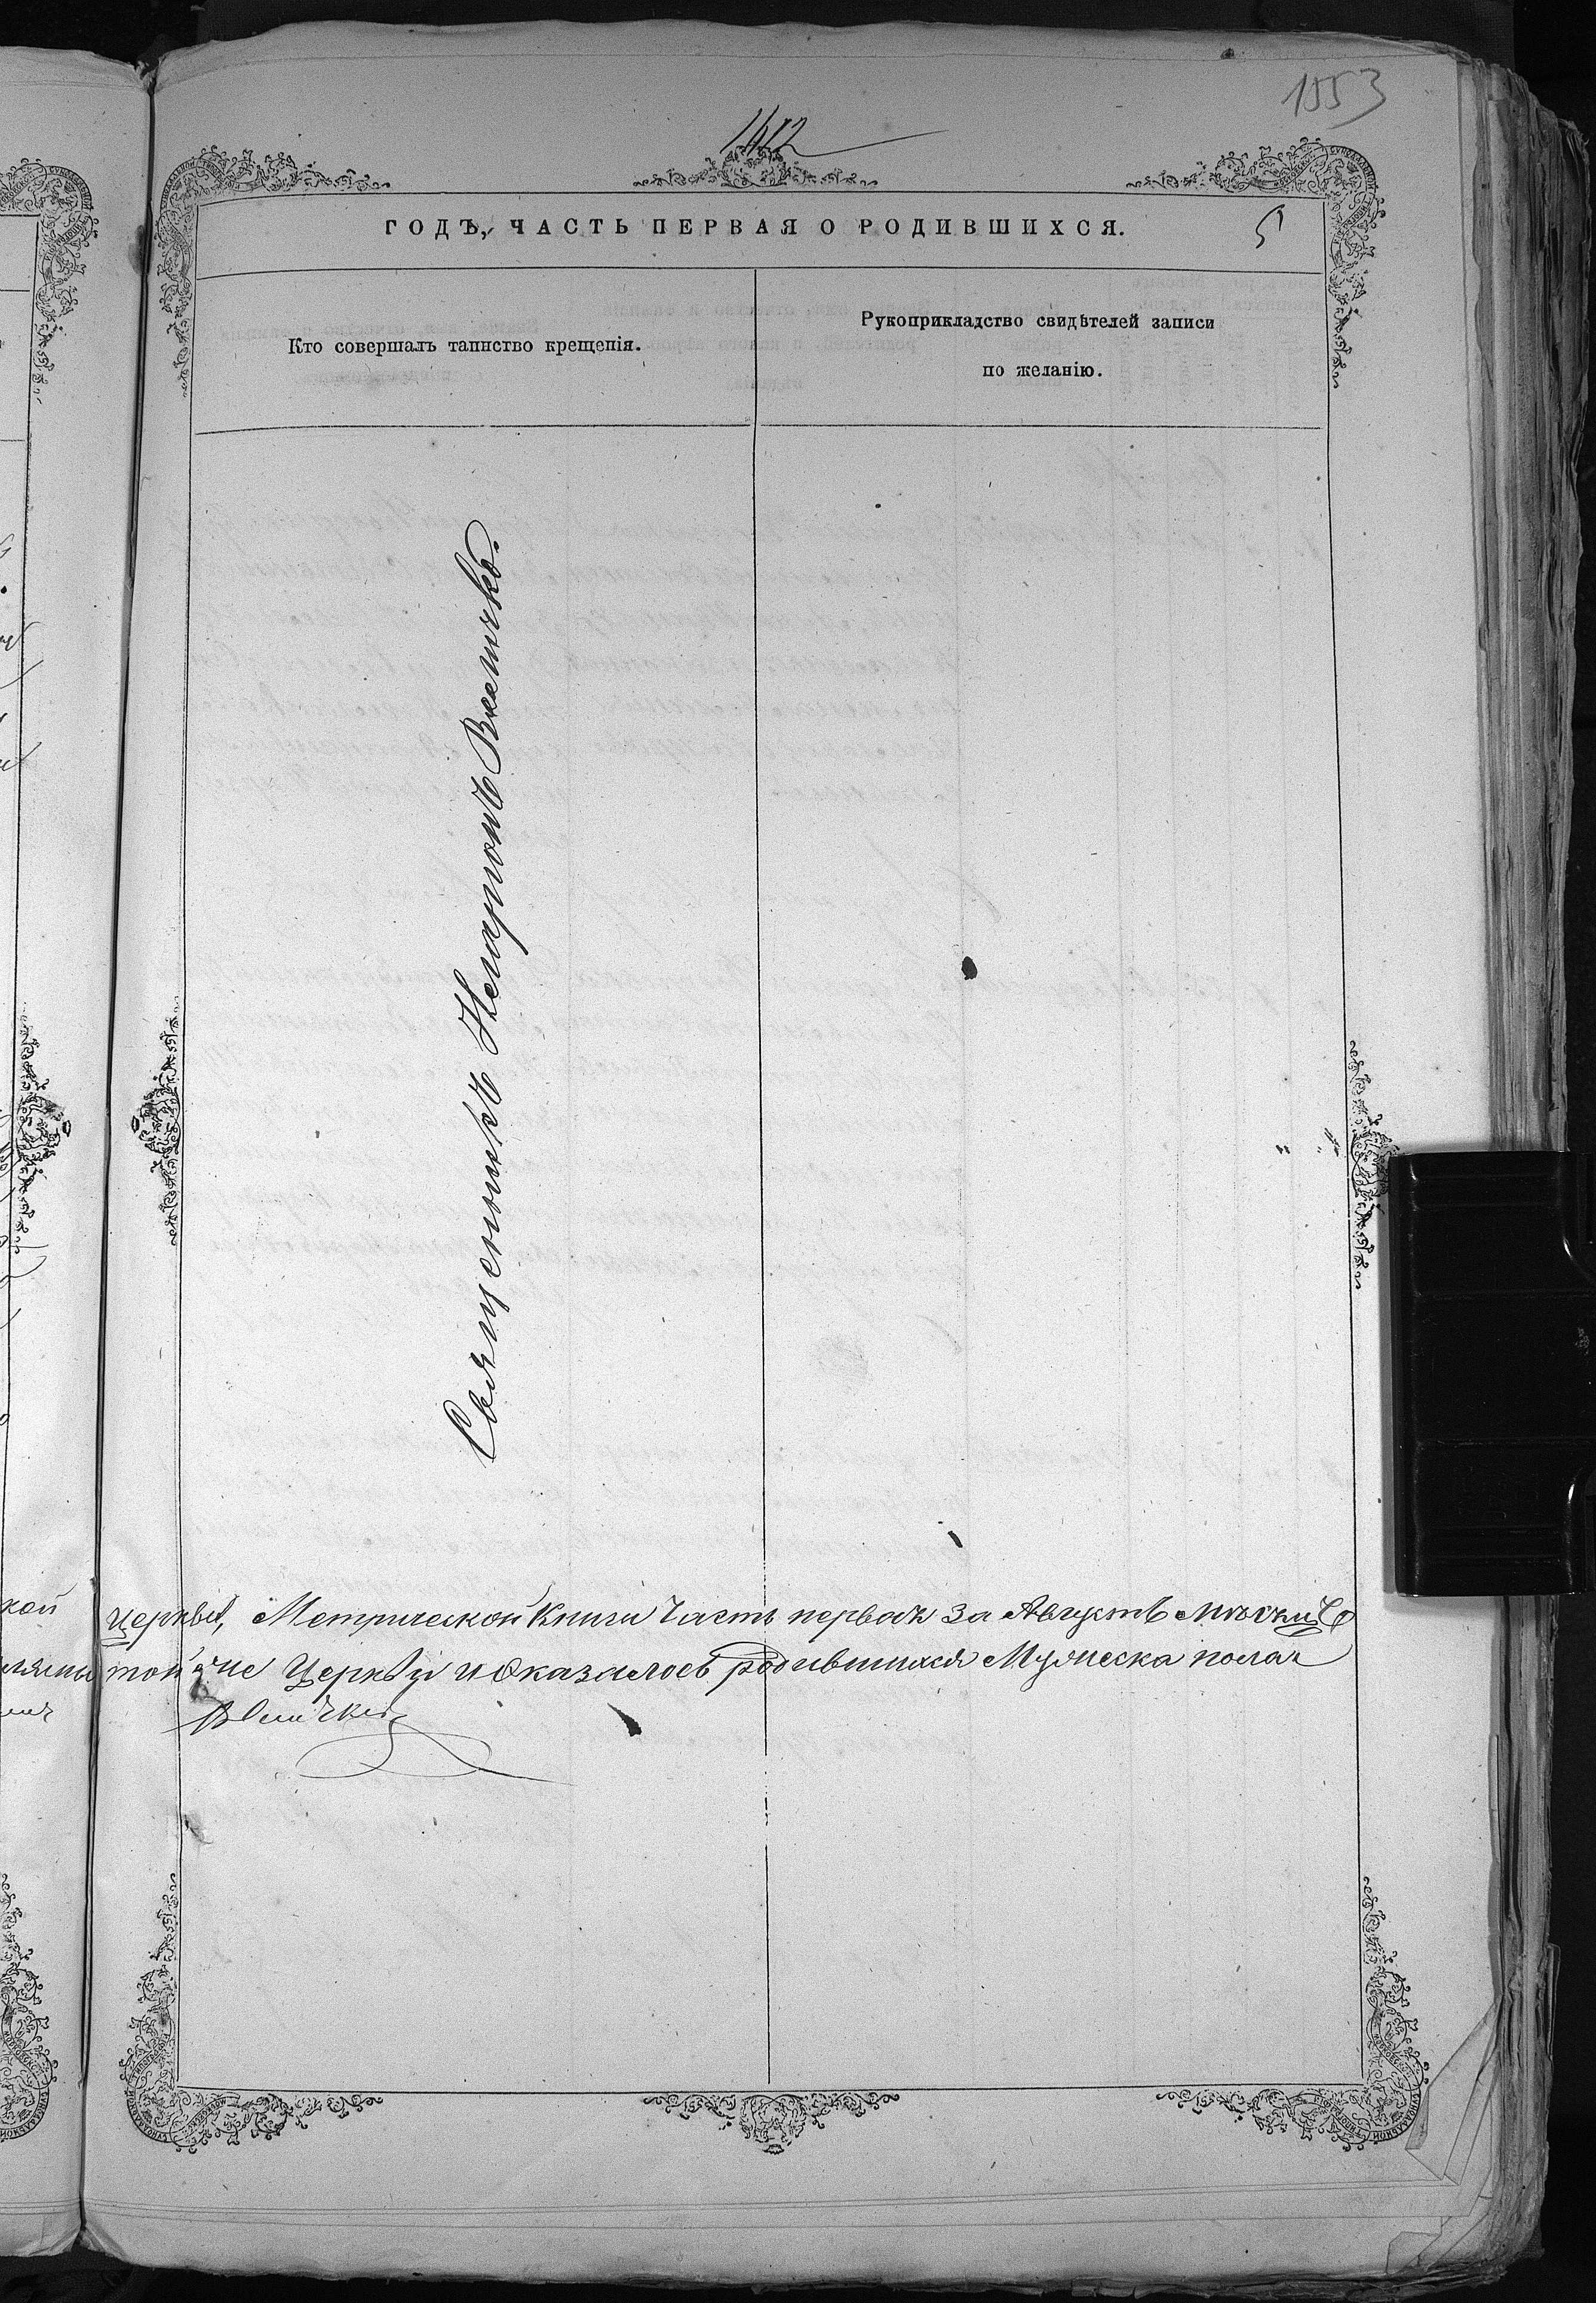 1553
1412
ГОДЪ, ЧАСТЬ ПЕРВАЯ О РОДИВШИХСЯ.
5
Кто совершалъ таинство крещенія.
Рукоприкладство свидѣтелей записи
по желанію.
Священникъ Немировъ Величко.
кой
церкви, Метрической Книги Часть первая За Августъ мѣсяцъ
той же Церкви и Оказалось родившихся Мужеска пола
Величко